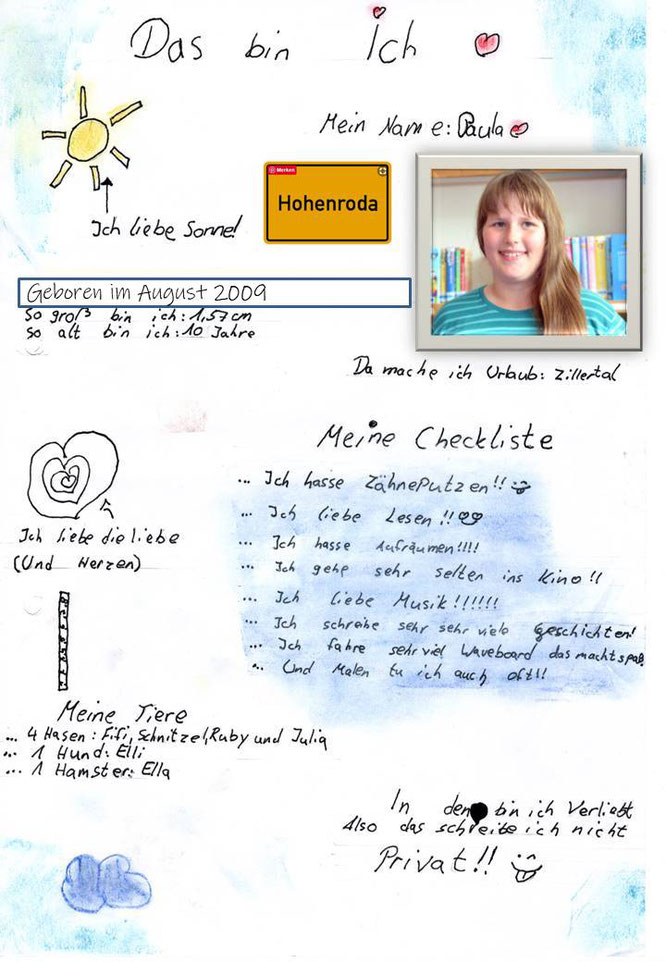 Das bin ich
Mein Name: Paula
Ich liebe Sonne!
Merken
Hohenroda
Geboren im August 2009
So groß bin ich: 1,57cm
So alt bin ich: 10 Jahre
Da mache ich Urlaub: Zillertal
Meine Checkliste
... Ich hasse ZähnePutzen!!
... Ich liebe Lesen!!
... Ich hasse Aufräumen!!!!
... Ich gehe sehr selten ins Kino!!
... Ich liebe Musik!!!!!!
... Ich schreibe sehr sehr viele Geschichten!
... Ich fahre sehr viel Waveboard das macht spaß
... Und Malen tu ich auch oft!!!
Ich liebe die liebe
(Und Herzen)
Meine Tiere
... 4 Hasen: Fifi, Schnitzel, Ruby und Julia
... 1 Hund: Elli
... 1 Hamster: Ella
In den bin ich Verliebt
Also das schreibe ich nicht
Privat!!